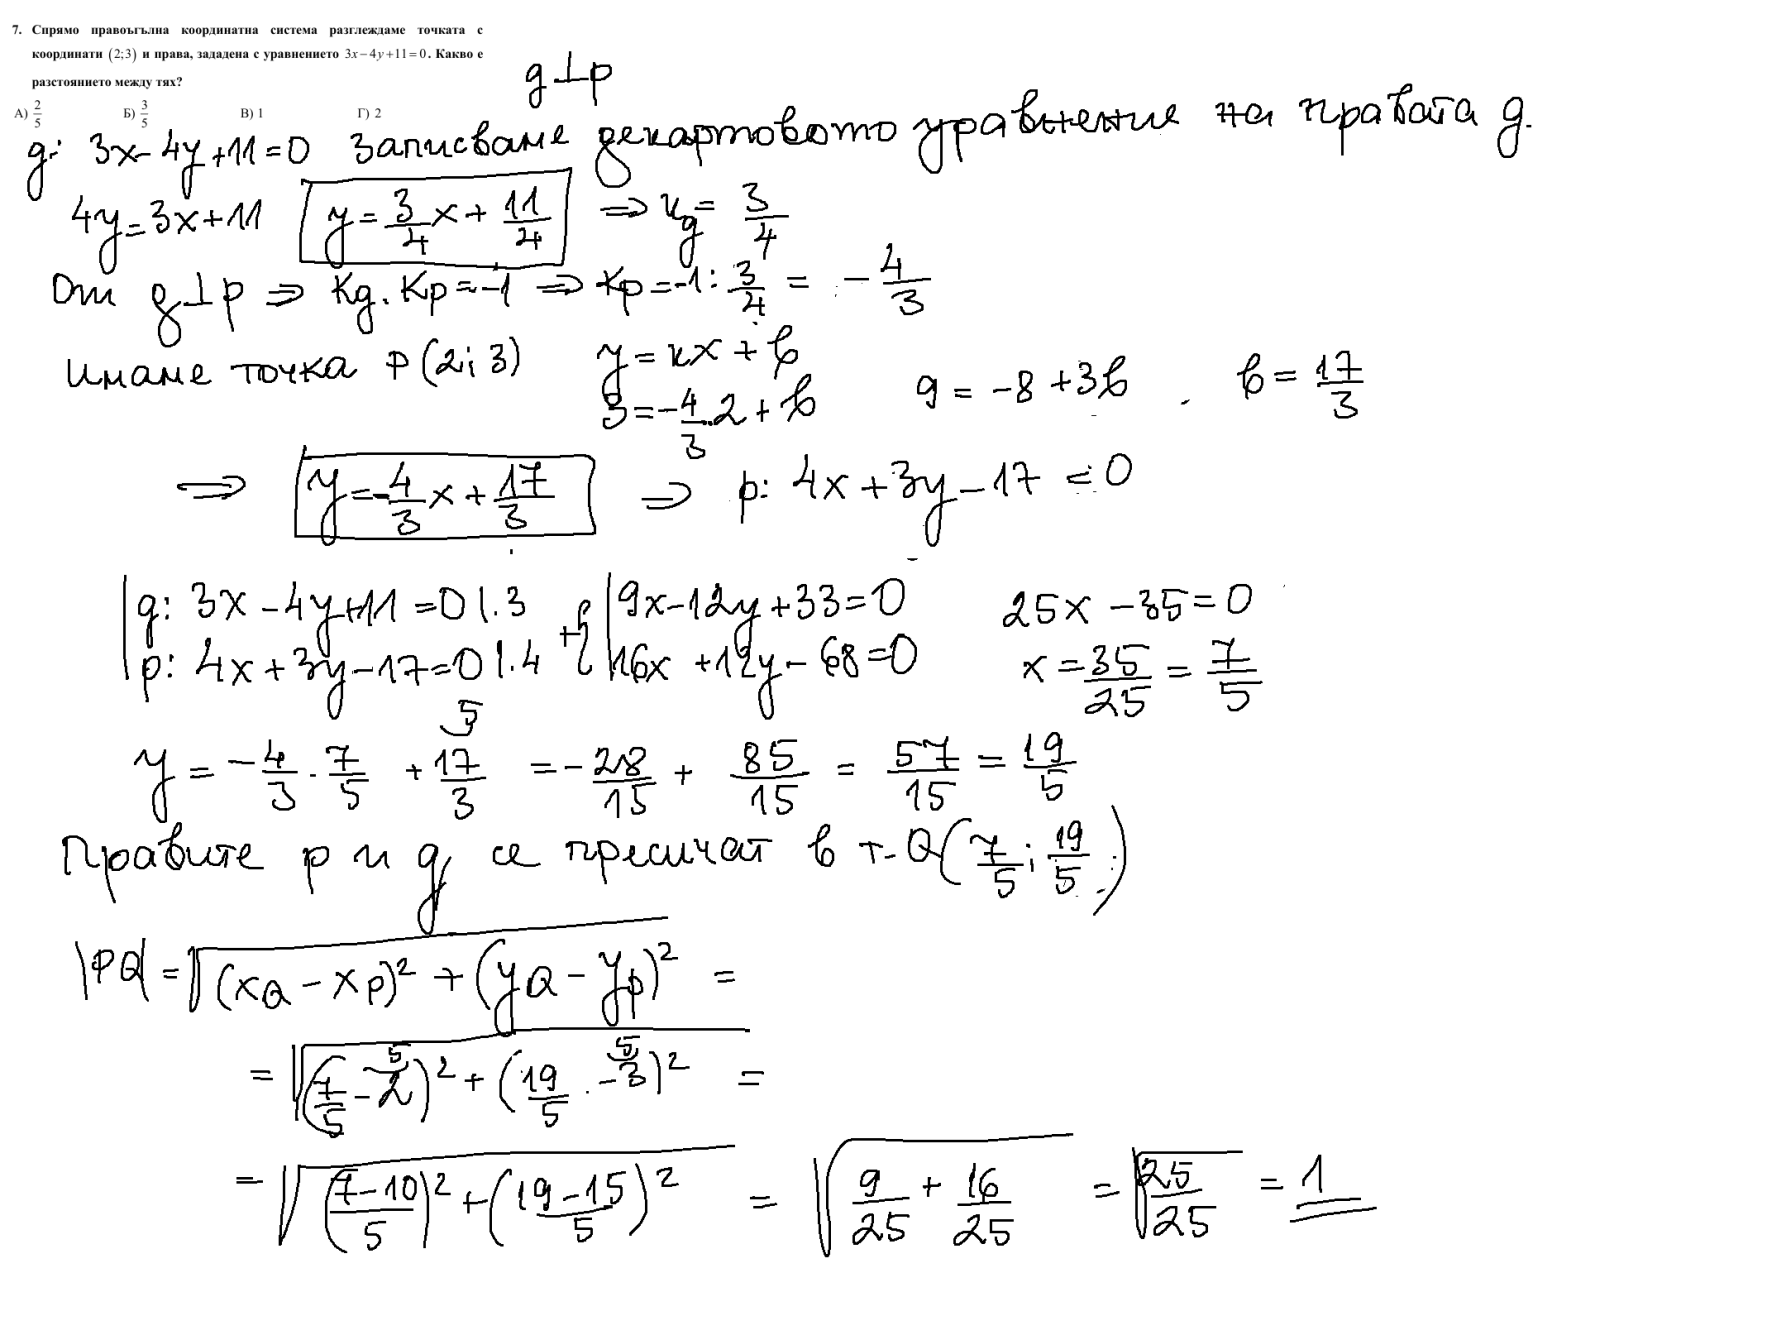 7. Спрямо правоъгълна координатна система разглеждаме точката с
координати (2;3) и права, зададена с уравнението 3x−4y+11=0. Какво е
разстоянието между тях?
А) 2/5 Б) 3/5 В) 1 Г) 2
g⊥p
g: 3x-4y+11=0 Записваме декартовото уравнение на правата g.
4y=3x+11 y=3/4x+11/4 ⇒ kg=3/4
От g⊥p ⇒ kg.kp=-1 ⇒ kp=-1:3/4=-4/3
Имаме точка P(2;3) y=kx+b
3=-4/3.2+b 9=-8+3b b=17/3
⇒ y=-4/3x+17/3 ⇒ p: 4x+3y-17=0
g: 3x-4y+11=0 |.3 + 9x-12y+33=0 25x-35=0
p: 4x+3y-17=0 |.4 16x+12y-68=0 x=35/25=7/5
y=-4/3.7/5+17/3 5 =-28/15+85/15=57/15=19/5
Правите p и g се пресичат в т. Q(7/5;19/5)
|PQ|=√(xQ-xP)²+(yQ-yP)² =
=√(7/5-2 5)²+(19/5-3 5)² =
=√(7-10/5)²+(19-15/5)² = √9/25+16/25 = √25/25 = 1